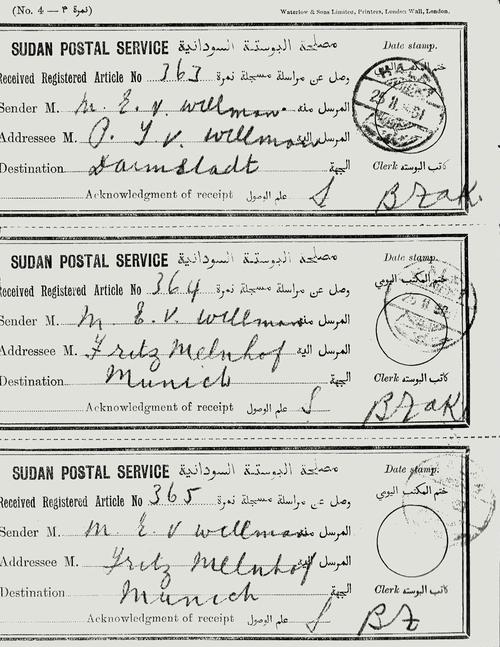 (No. 4 — نمرة ٣) Waterlow & Sons Limited, Printers, London Wall, London.
SUDAN POSTAL SERVICE مصلحة البوستة السودانية Date stamp.
Received Registered Article No 363 وصل عن مراسلة مسجلة نمرة
Sender M. M. E. v. Willmann المرسل منه
Addressee M. P. J v. Willmann المرسل اليه
Destination Darmstadt الجهة Clerk كاتب البوسته
Acknowledgment of receipt علم الوصول
SUDAN POSTAL SERVICE مصلحة البوستة السودانية Date stamp.
Received Registered Article No 364 وصل عن مراسلة مسجلة نمرة ختم المكتب اليومي
Sender M. M E. v. Willmann المرسل منه
Addressee M. Fritz Melnhof المرسل اليه
Destination Munich الجهة Clerk كاتب البوسته
Acknowledgment of receipt علم الوصول
SUDAN POSTAL SERVICE مصلحة البوستة السودانية Date stamp.
Received Registered Article No 365 وصل عن مراسلة مسجلة نمرة ختم المكتب اليومي
Sender M. M E v Willmann المرسل منه
Addressee M. Fritz Melnhof المرسل اليه
Destination Munich الجهة Clerk كاتب البوسته
Acknowledgment of receipt علم الوصول